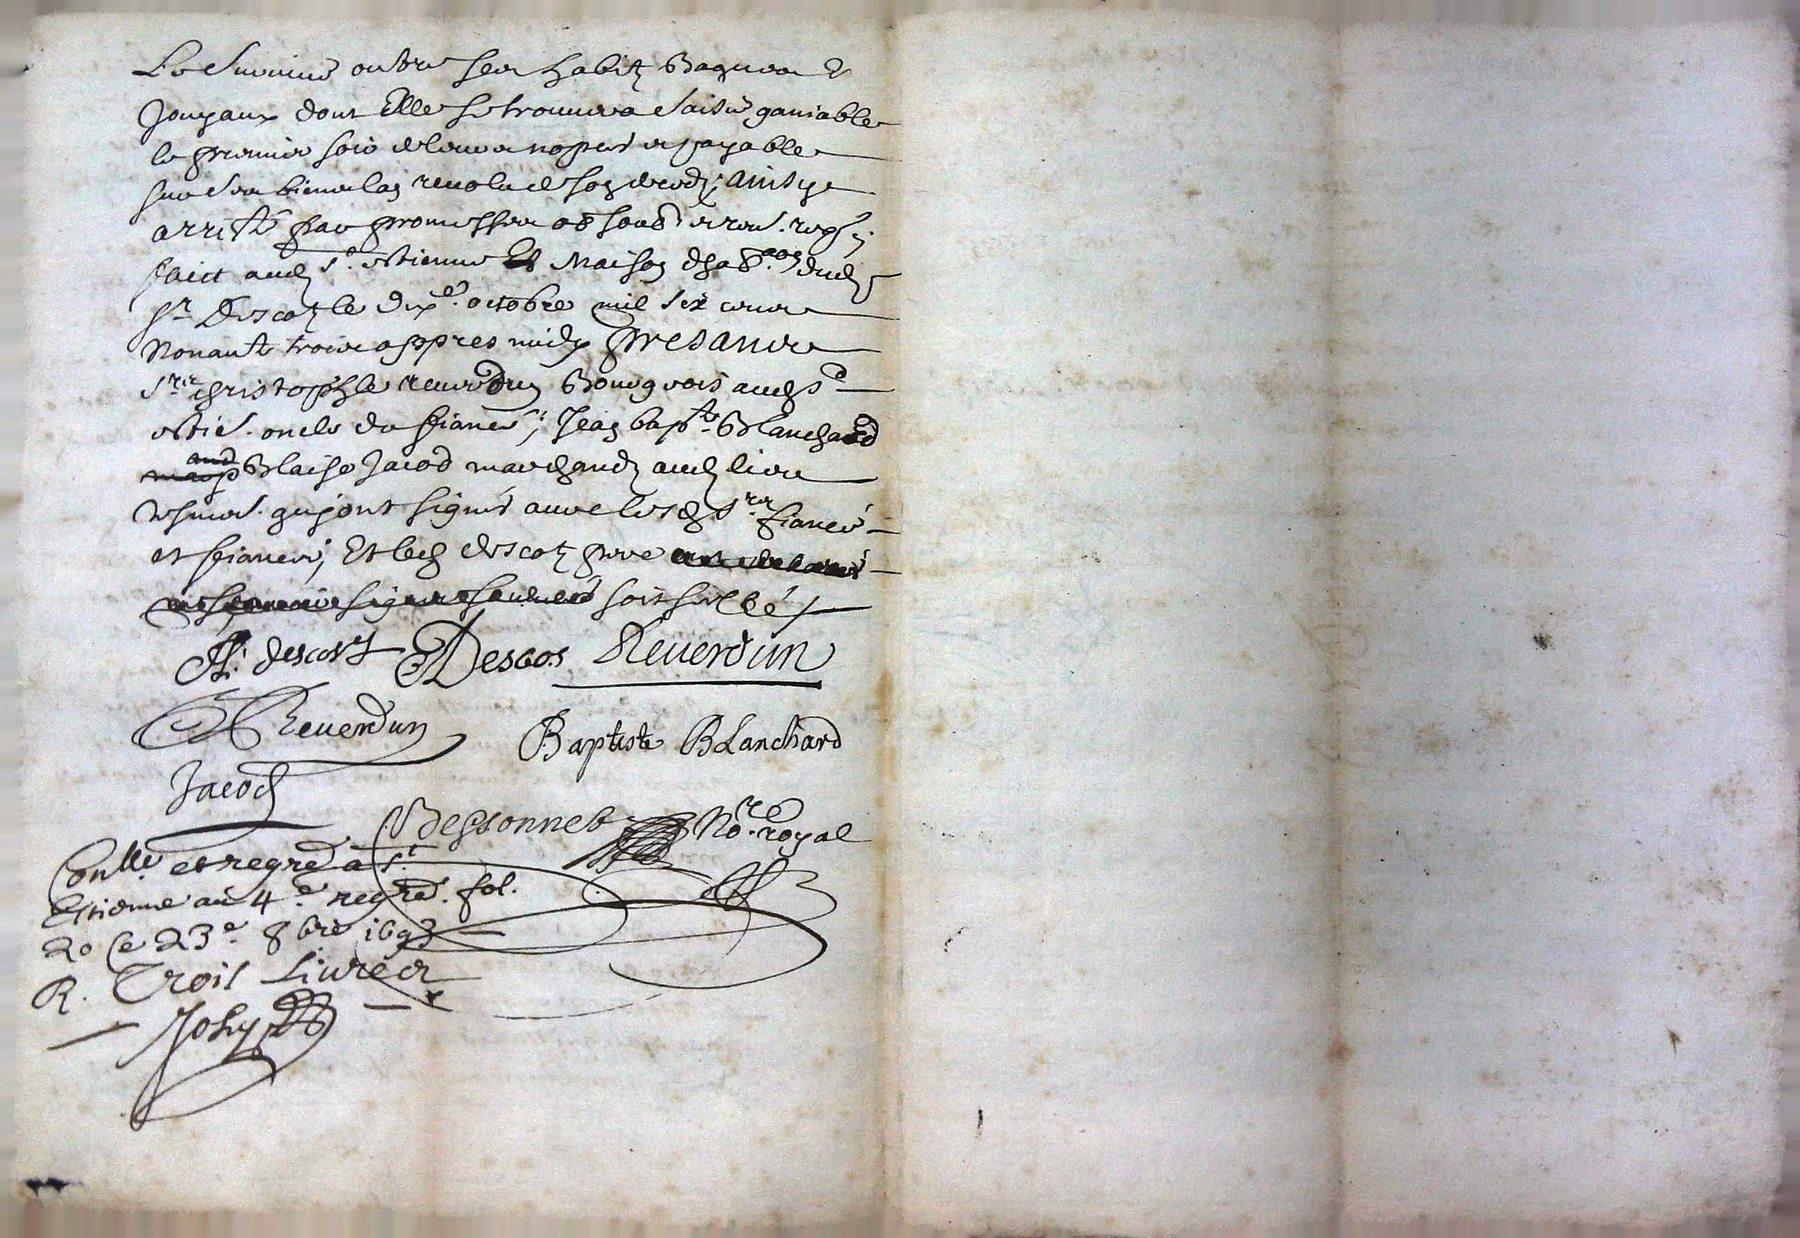 Le survivre outre ses habitz Bagues &
Jouyaux dont Elle se trouvera Saisie ganiable
le premier soir de leurs nopces et payable
sur Ses biens la revolu de son deces, Ainsy
arresté par promesses obligaõn ser. renõn
faict aud. St. Estienne Et Maison d'habon dud.
Sr Descotz le dixe. octobre mil six cens
Nonante trois appres midy presance
Sr christophle reverdun Bourgeois aud. St
Estie. oncle du fiancé, Jean bapte Blanchard
and Blaise Jacod marchandz aud. lieu
tesmoi. quj ont signés avec lesd. Srs fiancé
et fiancée, Et led. descotz pere
soit scellé
descost Descos Reverdun
Reverdun Baptiste BLanchard
Jacod
Bessonnet Nore. royal
Conlle. et regré a St
Estienne au 4.e regre. fol.
20 Ce 23e. 8bre 1693
R. Trois Livres